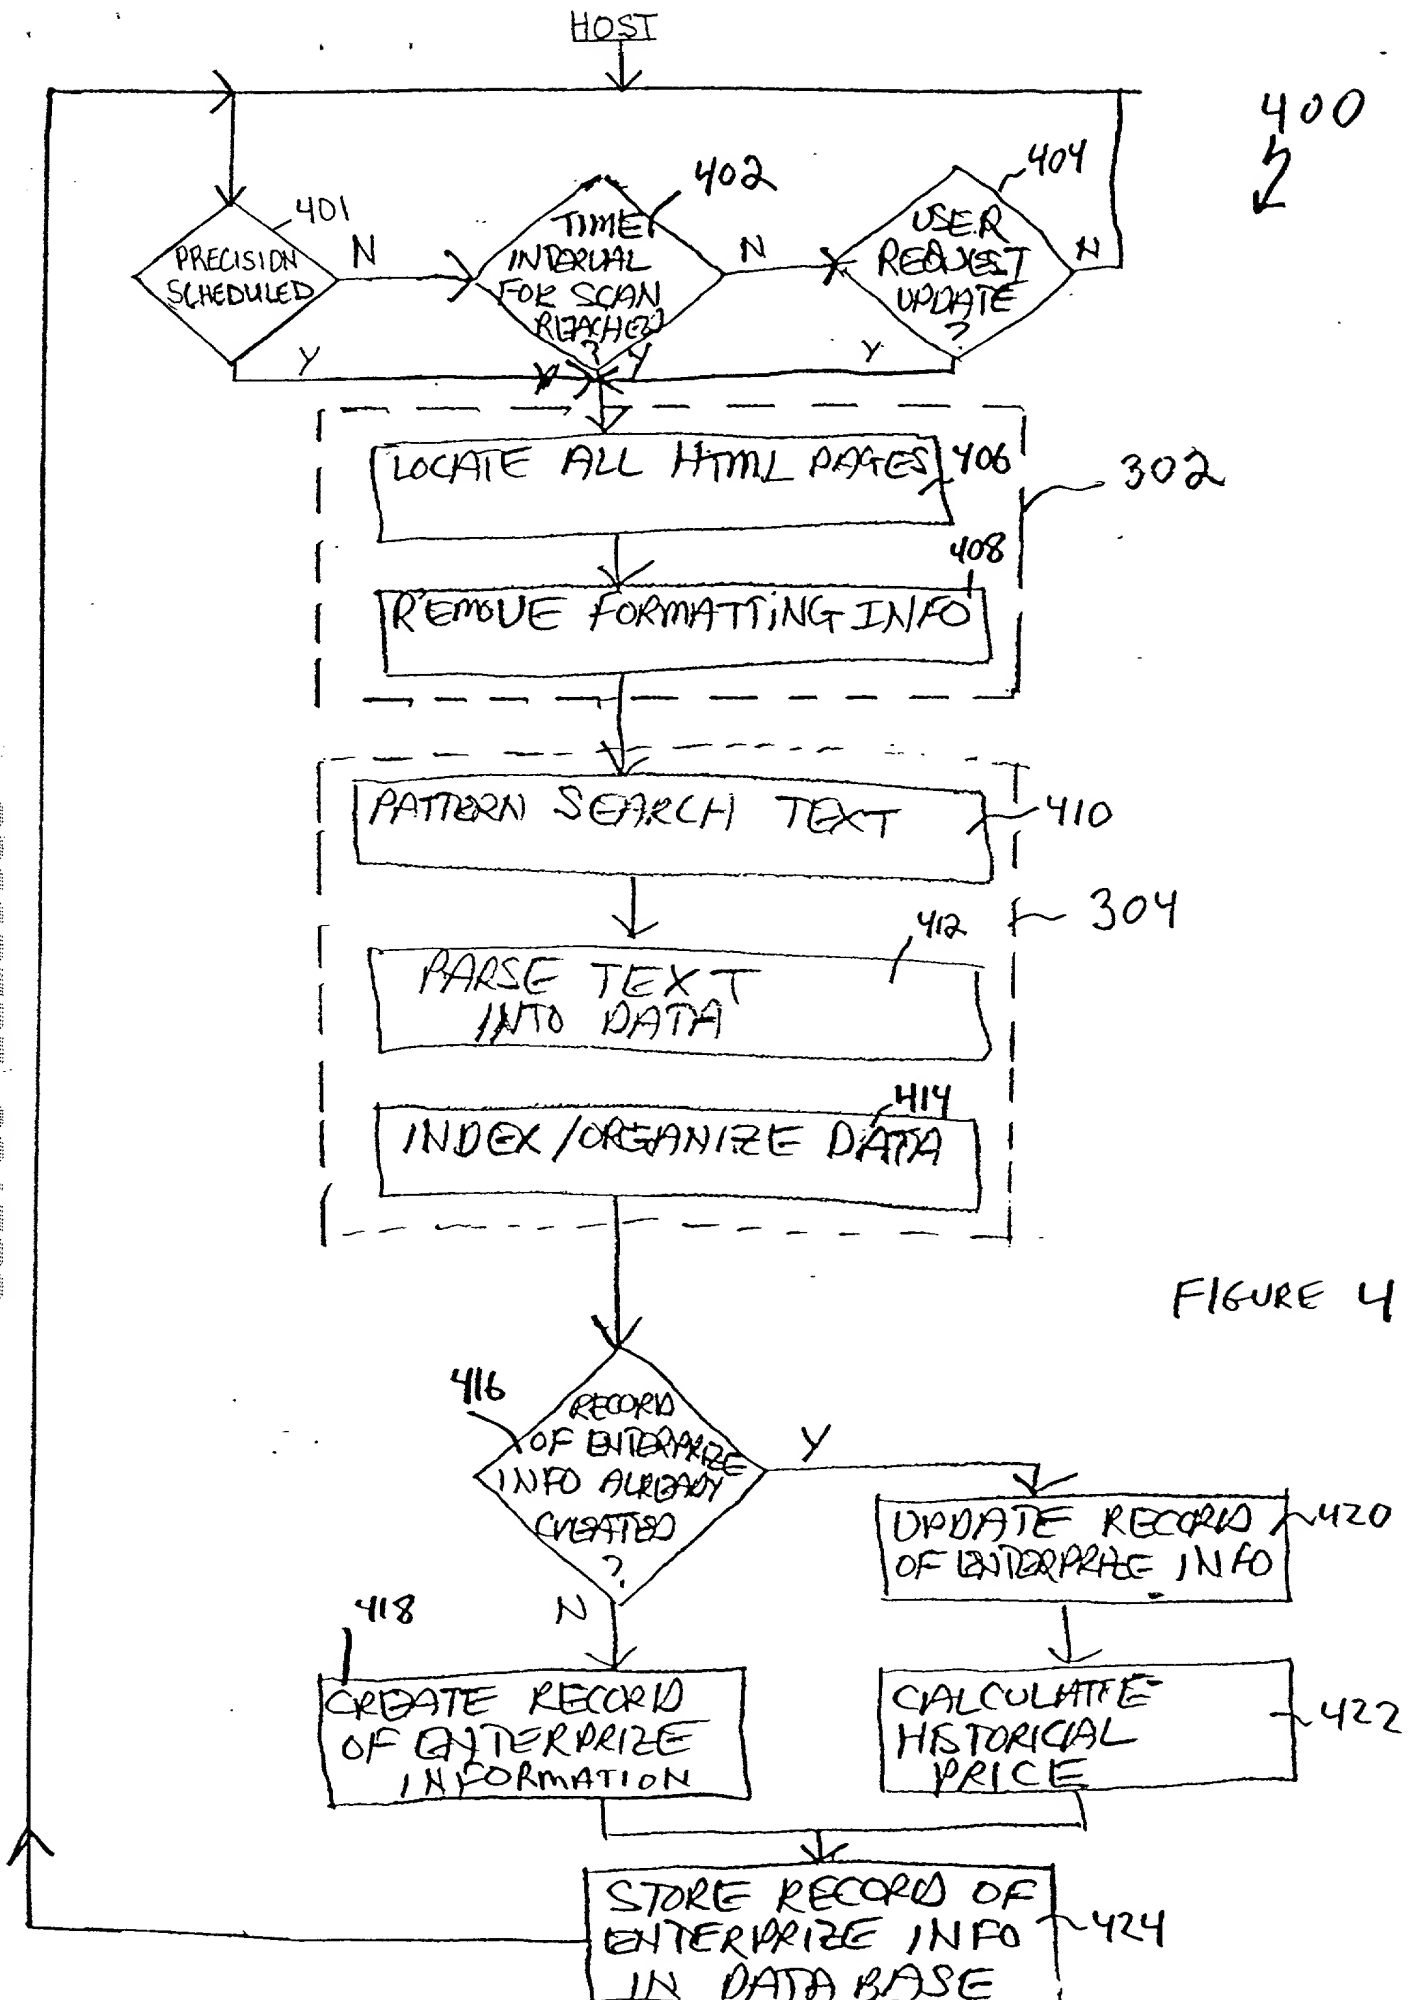 HOST
400
401
PRECISION
SCHEDULED
N
402
TIME
INTERVAL
FOR SCAN
REACHED
?
N
404
USER
REQUEST
UPDATE
?
N
Y
Y
Y
LOCATE ALL HTML PAGES
406
302
408
REMOVE FORMATTING INFO
PATTERN SEARCH TEXT
410
304
412
PARSE TEXT
INTO DATA
414
INDEX/ORGANIZE DATA
FIGURE 4
416
RECORD
OF ENTERPRIZE
INFO ALREADY
CREATED
?
Y
N
UPDATE RECORD
OF ENTERPRIZE INFO
420
418
CREATE RECORD
OF ENTERPRIZE
INFORMATION
CALCULATE
HISTORICIAL
PRICE
422
STORE RECORD OF
ENTERPRIZE INFO
IN DATABASE
424